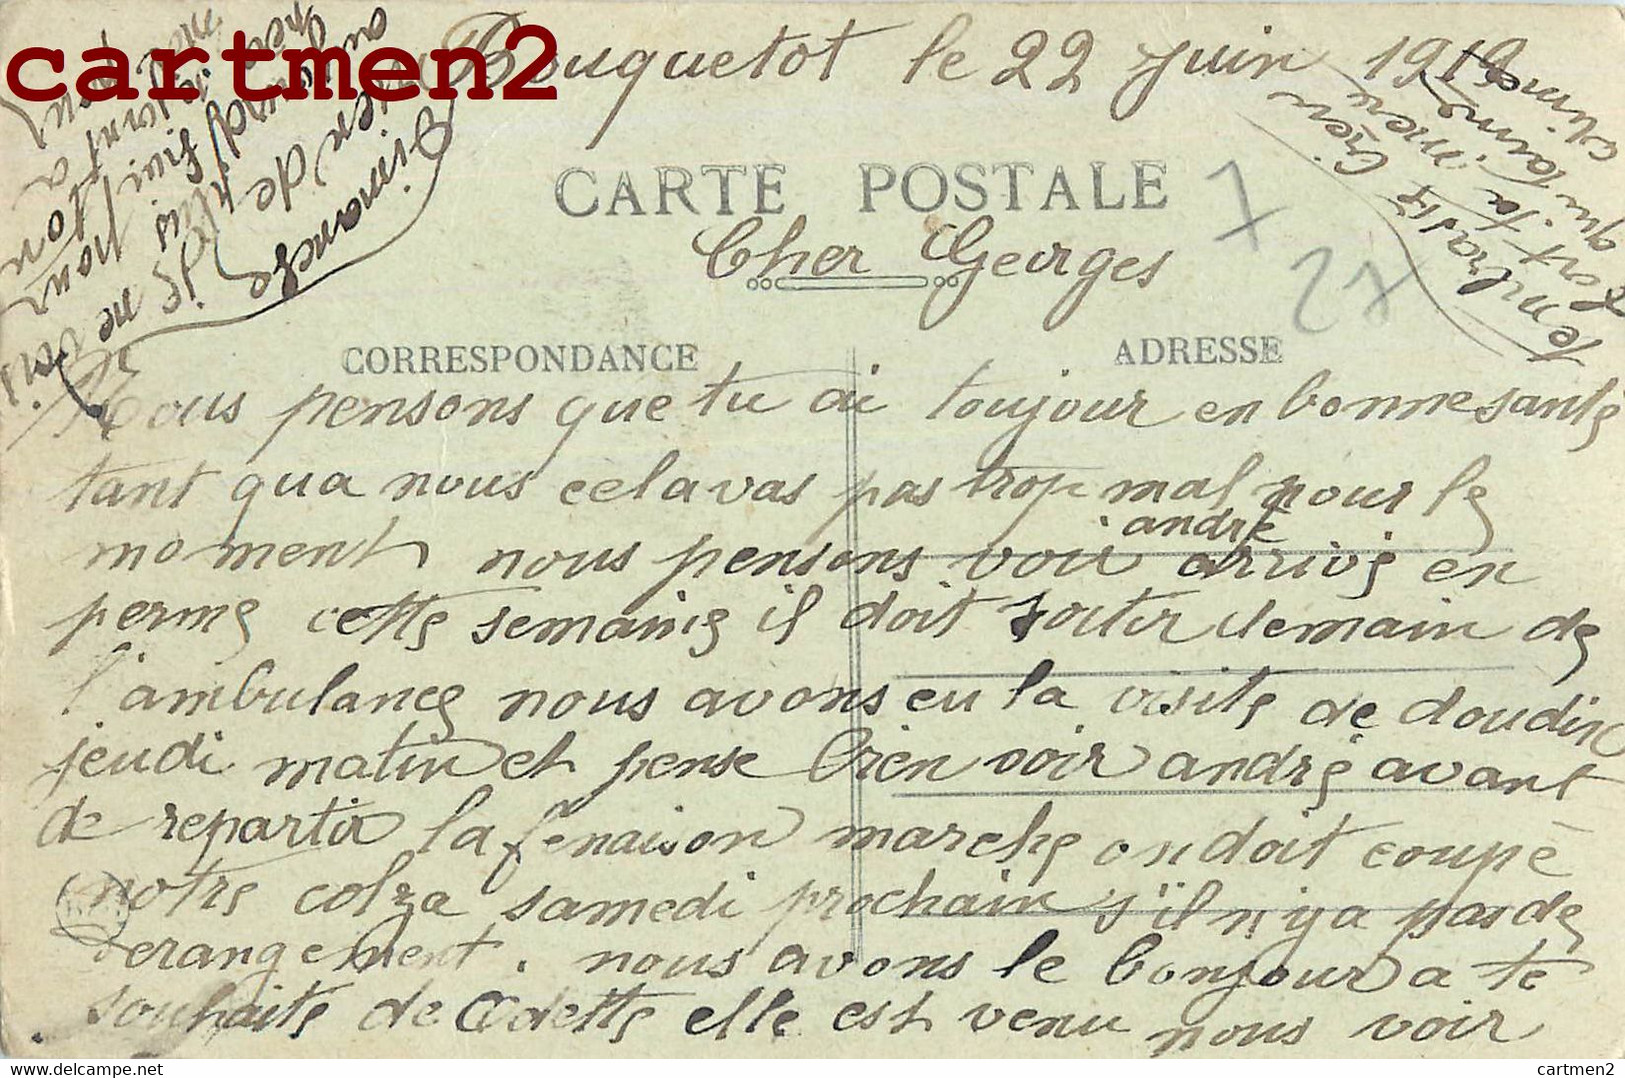 cartmen2
Bouquetot le 22 juin 1919
CARTE POSTALE
7
27
Cher Georges
CORRESPONDANCE
ADRESSE
Nous pensons que tu ai toujour en bonne santé
tant qua nous cela vas pas trop mal pour le
moment nous pensons voir andré arrivé en
perme cette semaine il doit sortir demain de
l'ambulance nous avons eu la visite de doudin
jeudi matin et pense bien voir andré avant
de repartir la fenaison marche on doit coupé
notre colza samedi prochain s'il n'y a pas de
derangement. nous avons le bonjour a te
souhaité de Odette elle est venu nous voir
dimanche
je ne vois
rien de plus
pour
Tembrasse bien
fort ta mère
qui taime
cartmen2